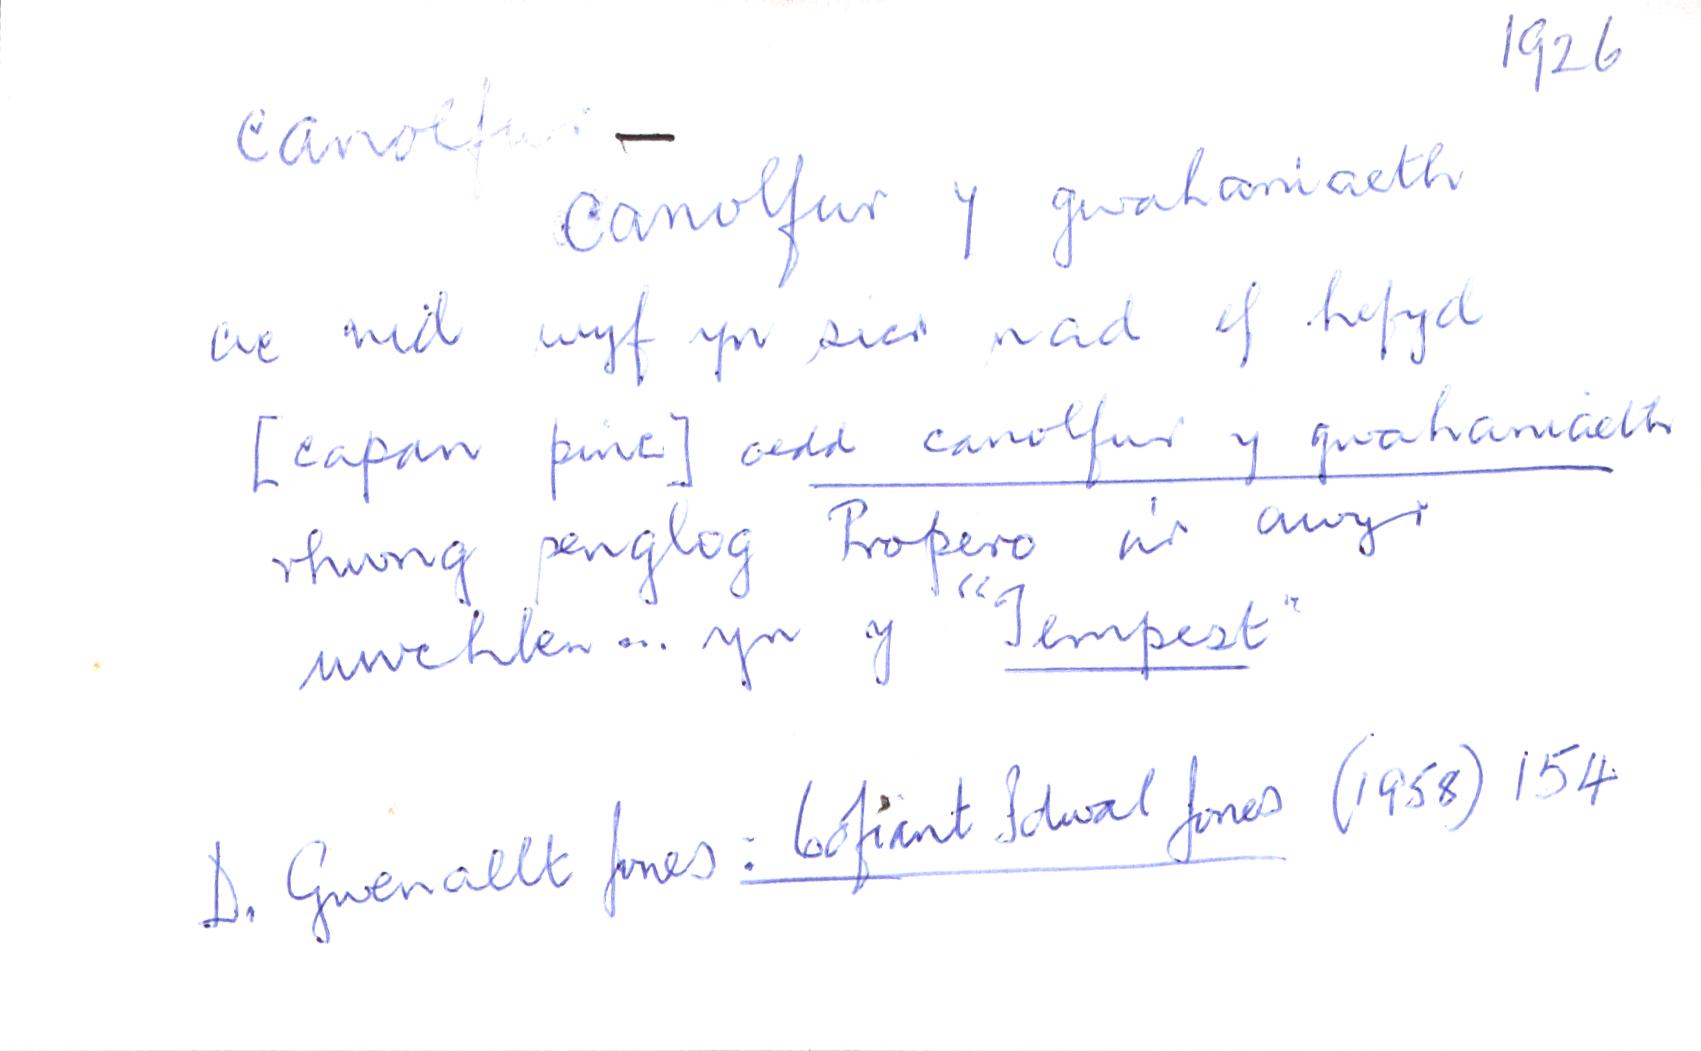 1926
canolfur —
canolfur y gwahaniaeth
ac nid wyf yn sicr nad ef hefyd
[capan pinc] oedd canolfur y gwahaniaeth
rhwng penglog Propero a'r awyr
uwchben ... yn y "Tempest"
D. Gwenallt Jones: Cofiant Idwal Jones (1958) 154